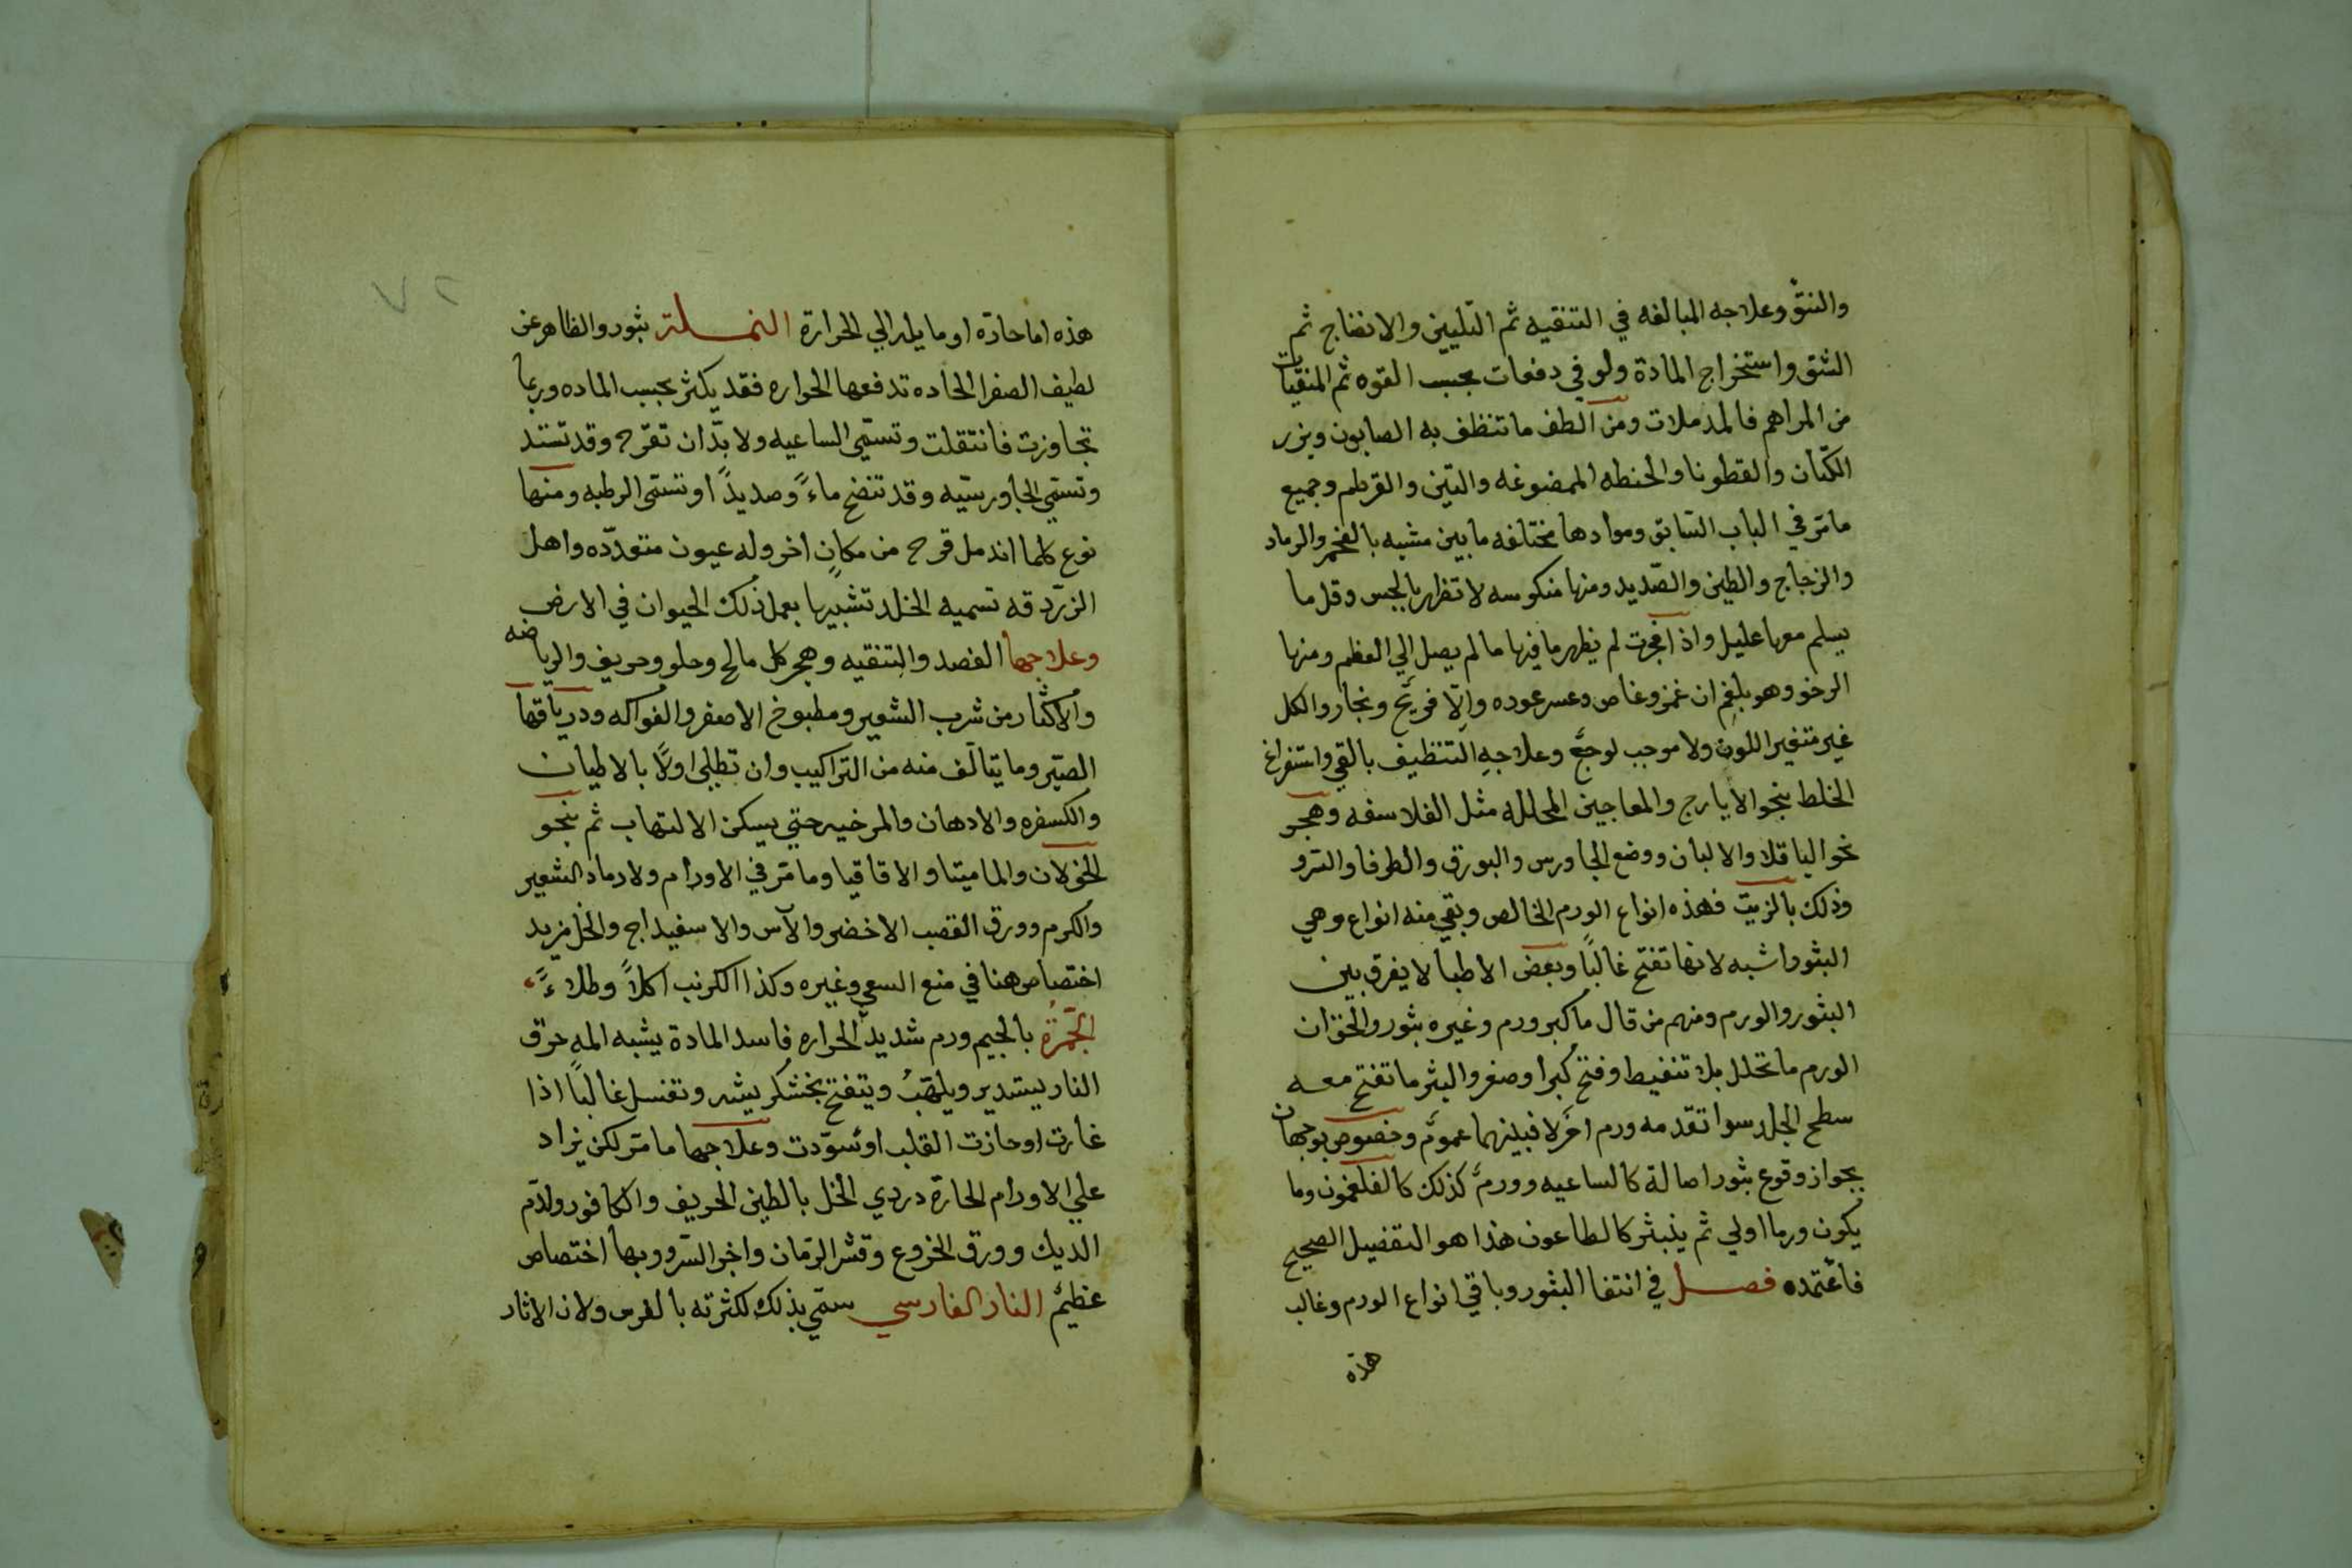 والنتؤ وعلاجه المبالغه في التنقيه ثم التليين والانضاج ثم
الشق واستخراج المادة ولو في دفعات بحسب القوه ثم المنقيات
من المراهم فالمدملات ومن الطف ما تنظف به الصابون وبزر
الكتان والقطونا والحنطه الممضوغه والتين والقرطم وجميع
مامر في الباب السابق وموادها مختلفه ما بين مشبه بالفحم والرماد
والزجاج والطين والصديد ومنها منكوسه لا تظهر بالجس وقل ما
يسلم معها عليل واذا فجرت لم يظهر ما فيها ما لم يصل الي العظم ومنها
الرخو وهو بلغم ان غمز وغاص وعسر عوده والا فريح وبخار والكل
غير متغير اللون ولا موجب لوجع وعلاجه التنظيف بالقي واستفراغ
الخلط بنحو الايارج والمعاجين المحلله مثل الفلاسفه وهجر
نحو الباقلا والالبان ووضع الجاورس والبورق والطرفا والسرو
وذلك بالزيت فهذه انواع الورم الخالص وبقي منه انواع وهي
البثور اشبه لانها تفتح غالبًا وبعض الاطبا لا يفرق بين
البثور والورم ومنهم من قال ما كبر ورم وغيره بثور والحق ان
الورم ما تحلل بلا تنفيط وفتح كبرا وصغر والبثر ما تفتح معه
سطح الجلد سوا تقدمه ورم اخر لا فبينهما عموم وخصوص بوجهان
بجواز وقوع بثور اصالة كالساعيه وورم كذلك كالفلغمون وما
يكون ورما اولي ثم ينبثر كالطاعون هذا هو التفصيل الصحيح
فاعتمده فصل في انتفا البثور وباقي انواع الورم وغالب
هذه
٧٢
هذه اما حادة او مايله الي الحرارة النملة بثور والظاهر عن
لطيف الصفرا الحاده تدفعها الحراره فقد يكثر بحسب الماده وربما
تجاوزت فانتقلت وتسمي الساعيه ولا بد ان تقرح وقد تستد
وتسمي الجاورسيه وقد تنضح ماءً وصديدً او تسمي الرطبه ومنها
نوع كلما اندمل قرح من مكانٍ اخر وله عيون متعدده واهل
الزردقه تسميه الخلد تشبيها بعمل ذلك الحيوان في الارض
وعلاجها الفصد والتنقيه وهجر كل مالح وحلو وحريف والرياضه
والاكثار من شرب الشعير ومطبوخ الاصفر والفواكه ودرياقها
الصبر وما يتالف منه من التراكيب وان تطلي اولًا بالاطيان
والكسفره والادهان والمرخيه حتي يسكن الالتهاب ثم بنحو
الخولان والماميتا والاقاقيا ومامر في الاورام ولا رماد الشعير
والكرم وورق القصب الاخضر والآس والاسفيداج والخل مزيد
اختصاص هنا في منع السعي وغيره وكذا الكرنب اكلاً وطلاءً
الجمرة بالجيم ورم شديد الحراره فاسد المادة يشبه المه حرق
النار يستدير ويلهب ويتفتح بخشكريشه وتغسل غالبًا اذا
غارت او حازت القلب او سودت وعلاجها مامر لكن يزاد
علي الاورام الحارة دردي الخل بالطين الحريف والكافور ولدم
الديك وورق الخروع وقشر الرمان واخر السرو وبها اختصاص
عظيم النار الفارسي سمي بذلك لكثرته بالفرس ولان الاثار